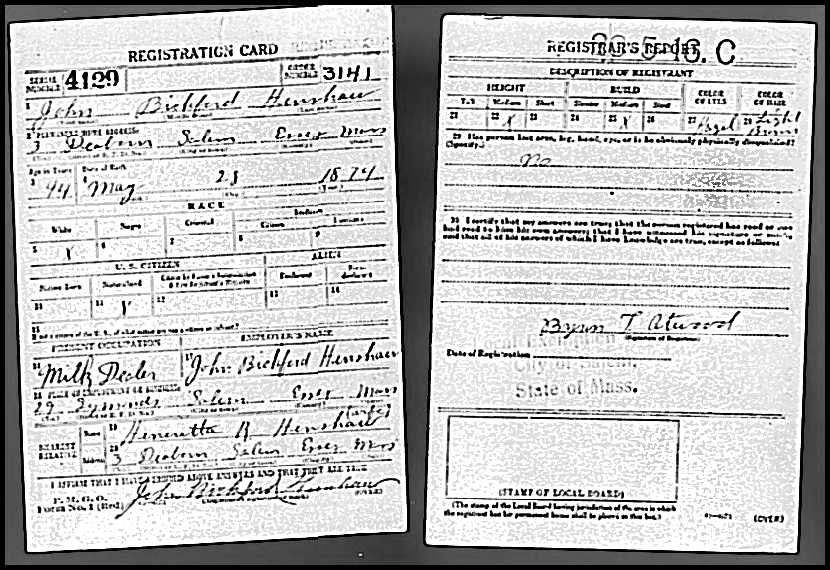 REGISTRATION CARD
SERIAL NUMBER 4129 ORDER NUMBER 3141
1 John Bickford Henshaw
2 PERMANENT HOME ADDRESS:
3 Dearborn Salem Essex Mass
Age in Years Date of Birth
3 44 4 May 28 1874
RACE
White Negro Oriental Indian
Citizen
5 X 6 7 8 9
U. S. CITIZEN ALIEN
Native Born Naturalized Citizen by Father's Naturalization
10 11 X 12 13 14
15
PRESENT OCCUPATION EMPLOYER'S NAME
16 Milk Dealer 17 John Bickford Henshaw
18 PLACE OF EMPLOYMENT OR BUSINESS
29 Symonds Salem Essex Mass
(wife)
NEAREST RELATIVE Name 19 Henrietta R Henshaw
Address 20 3 Dearborn Salem Essex Mass
I AFFIRM THAT I HAVE VERIFIED ABOVE ANSWERS AND THAT THEY ARE TRUE
P. M. G. O.
Form No. 1 (Red) John Bickford Henshaw
(OVER)
REGISTRAR'S REPORT C
DESCRIPTION OF REGISTRANT
HEIGHT BUILD COLOR OF EYES COLOR OF HAIR
Tall Medium Short Slender Medium Stout
21 22 X 23 24 25 X 26 27 Hazel 28 Light Brown
29 Has person lost arm, leg, hand, eye, or is he obviously physically disqualified?
(Specify.)
No
30 I certify that my answers are true; that the person registered has read or has
had read to him his own answers; that I have witnessed his signature or mark,
and that all of his answers of which I have knowledge are true, except as follows:
T. Atwood
(Signature of Registrar)
Local Exemption
Date of Registration
City of Salem,
State of Mass.
(STAMP OF LOCAL BOARD)
(The stamp of the Local Board having jurisdiction of the area in which
the registrant has his permanent home shall be placed in this box.)
(OVER)